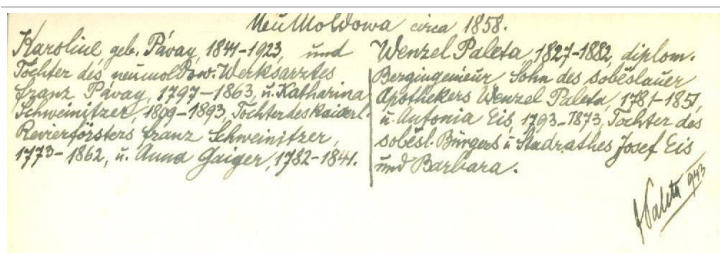 Neu Moldowa circa 1858.
Karoline geb. Pávay, 1841-1923, und
Tochter des neumoldow. Werksarztes
Franz Pávay, 1797-1863, u. Katharina
Schweinitzer, 1809-1893, Tochter des kaiserl.
Revierförsters Franz Schweinitzer,
1773-1862, u. Anna Gaiger, 1782-1841.
Wenzel Paleta, 1827-1882, diplom.
Bergingenieur, Sohn des soběslauer
Apothekers Wenzel Paleta, 1781-1851,
u. Antonia Eis, 1793-1873, Tochter des
soběsl. Bürgers u. Stadrathes Josef Eis
und Barbara.
Paleta 943